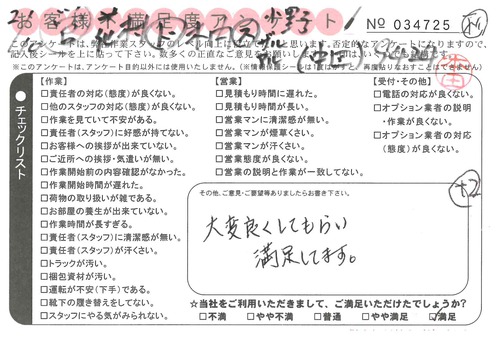 お客様満足度アンケート!
No 034725
このアンケートは、弊社作業スタッフのレベル向上に役立てたいと思います。否定的なアンケートになりますので、
記入後シールを上に貼って下さい。数多くの正直なご意見をお願いします。
※このアンケートは、アンケート目的以外には使用いたしません。
チェックリスト
【作業】
□責任者の対応(態度)が良くない。
□他のスタッフの対応(態度)が良くない。
□作業を見ていて不安がある。
□責任者(スタッフ)に好感が持てない。
□お客様への挨拶が出来ていない。
□ご近所への挨拶・気遣いが無い。
□作業開始前の内容確認がなかった。
□作業開始時間が遅れた。
□荷物の取り扱いが雑である。
□お部屋の養生が出来ていない。
□作業時間が長すぎる。
□責任者(スタッフ)に清潔感が無い。
□責任者(スタッフ)が汗くさい。
□トラックが汚い。
□梱包資材が汚い。
□運転が不安(下手)である。
□靴下の履き替えをしてない。
□スタッフにやる気がみられない。
【営業】
□見積もり時間に遅れた。
□見積もり時間が長い。
□営業マンに清潔感が無い。
□営業マンが煙草くさい。
□営業マンが汗くさい。
□営業態度が良くない。
□営業の説明と作業が一致してない。
【受付・その他】
□電話の対応が良くない。
□オプション業者の説明
・作業が良くない。
□オプション業者の対応
(態度)が良くない。
その他、ご意見・ご要望等ありましたらお書き下さい。
大変良くしてもらい
満足してます。
+2
☆当社をご利用いただきまして、ご満足いただけたでしょうか?
□不満 □やや不満 □普通 □やや満足 ☑満足